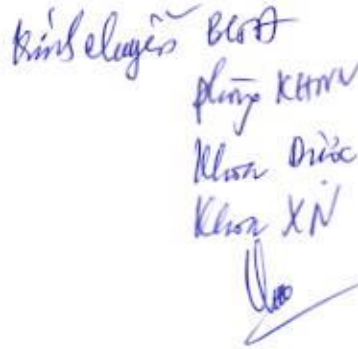 Kính chuyển BGĐ
phòng KHNV
Khoa Dược
Khoa XN